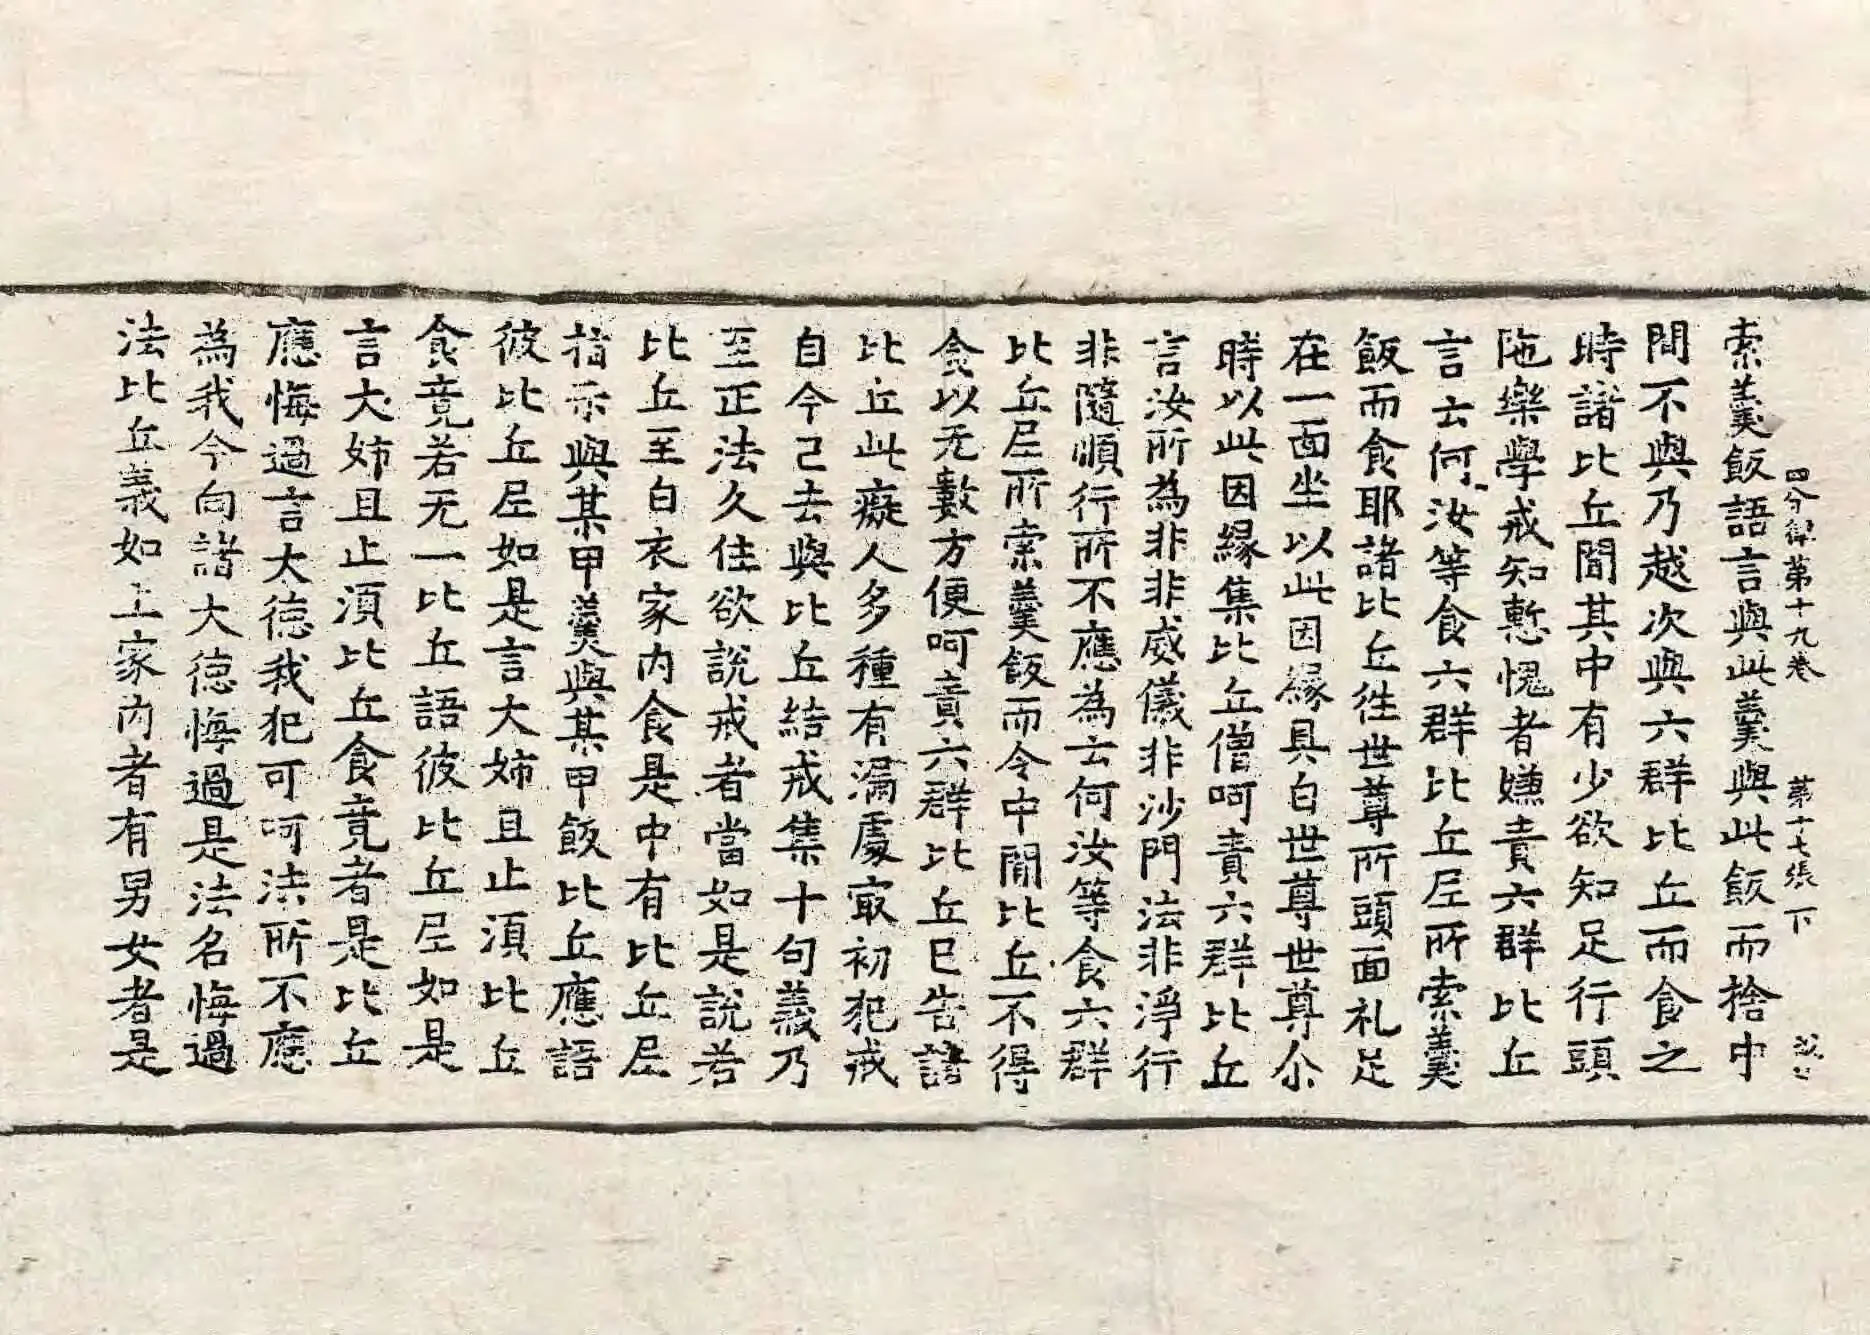 四分律第十九卷 第十七張 下
索羹飯語言與此羹與此飯而捨中
間不與乃越次與六群比丘而食之
時諸比丘聞其中有少欲知足行頭
陁樂學戒知慙愧者嫌責六群比丘
言云何汝等食六群比丘尼所索羹
飯而食耶諸比丘往世尊所頭面礼足
在一面坐以此因緣具白世尊世尊尒
時以此因緣集比丘僧呵責六群比丘
言汝所為非非威儀非沙門法非淨行
非隨順行所不應為云何汝等食六群
比丘尼所索羹飯而令中間比丘不得
食以无數方便呵責六群比丘已告諸
比丘此癡人多種有漏處冣初犯戒
自今已去與比丘結戒集十句義乃
至正法久住欲說戒者當如是說若
比丘至白衣家內食是中有比丘尼
指示與某甲羹與某甲飯比丘應語
彼比丘尼如是言大姊且止須比丘
食竟若无一比丘語彼比丘尼如是
言大姊且止須比丘食竟者是比丘
應悔過言大德我犯可呵法所不應
為我今向諸大德悔過是法名悔過
法比丘義如上家內者有男女者是